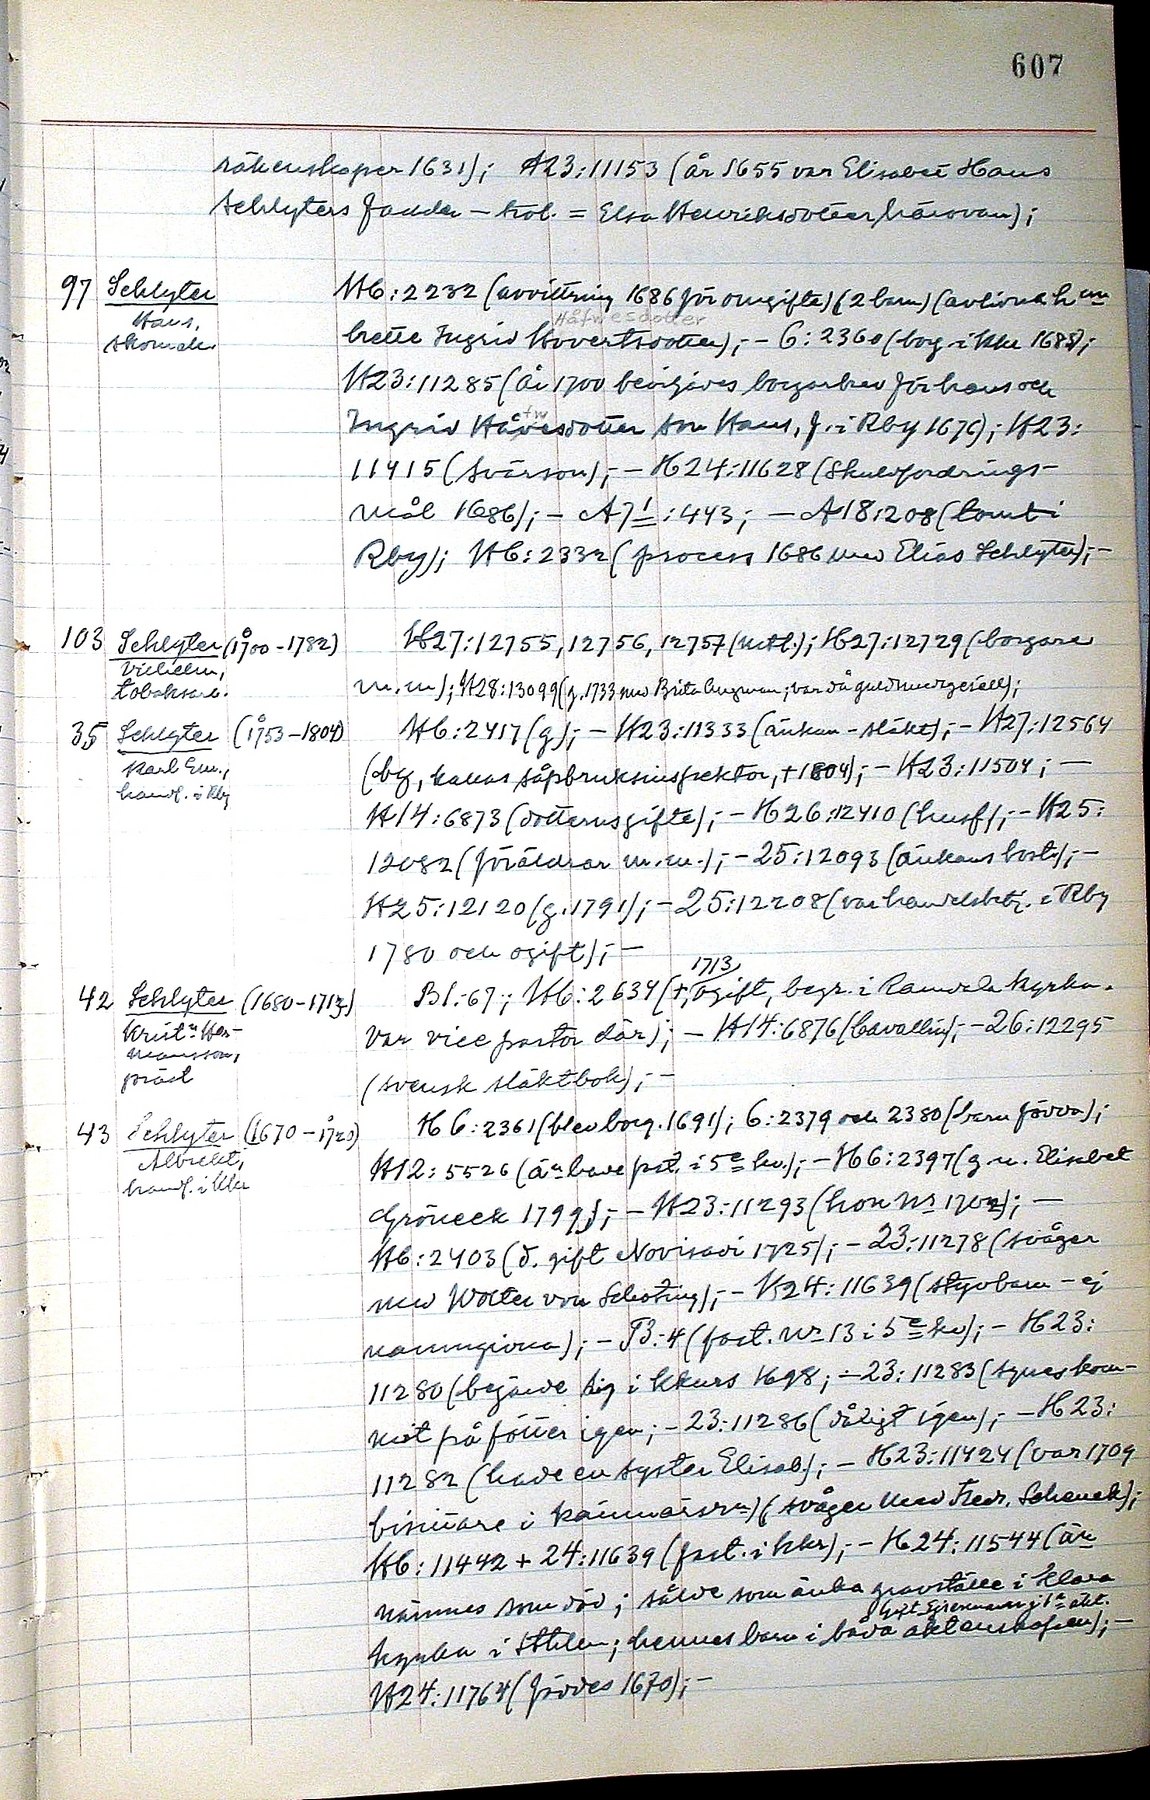 607
räkenskaper 1631); H23:11153 (år 1655 var Elisabet Hans
Schlyters fadder – trol. = Elsa Henriksdotter härovan);
97 Schlyter H6:2232 (avvittring 1686 för omgifte) (2 barn) (avlidna h
Hans, Håfwesdotter
skomak. hette Ingrid Hovertsdotter); – 6:2360 (borg. i Kkr 1688);
H23:11285 (År 1700 beviljades borgarbrev för hans och
Ingrid Håfwesdotter son Hans, f. i Rby 1676); H23:
11415 (svärson); – H24:11628 (Skuldfordrings-
mål 1686); – A71:443; – A18:208 (tomt i
Rby); H6:2332 (process 1686 med Elias Schlyter); –
103 Schlyter (1700–1782) H27:12755, 12756, 12757 (utt.); H27:12729 (borgare
Vilhelm,
tobaksh. m.m); H28:13099 (g. 1733 med Brita Bugman; var då guldsmedgesäll);
35 Schlyter (1753–1804) H6:2417 (g); – H23:11333 (änkan – släkt); – H27:12564
Karl Em., (bg, kallas såpbruksinspektor, † 1804); – H23:11504; –
handl. i Rby
H14:6873 (dotterns gifte); – H26:12410 (husf); – H25:
12082 (föräldrar m.m.); – 25:12093 (änkans bost.); –
H25:12120 (g. 1791); – 25:12208 (var handelsbetj. i Rby
1780 och ogift); –
1713
42 Schlyter (1680–1713) B1:67; H6:2634 (†, ogift, begr. i Ramdala kyrka.
Krist. Her-
mansson, var vice pastor där); – H14:6876 (Cavallin); – 26:12295
präst (svensk släktbok); –
43 Schlyter (1670–1720) H6:2361 (blev borg. 1691); 6:2379 och 2380 (barn födda);
Albrekt, H12:5526 (än hade fast. i 5e kv.); – H6:2397 (g m. Elisabet
handl. i Kkr
Gröneck 1799); – H23:11293 (hon 1702); –
H6:2403 (d. gift Novisadi 1725); – 23:11278 (svåger
med Wolter von Schoting); – H24:11639 (styvbarn – ej
namngivna); – B:4 (fast. nr 13 i 5e kv); – H23:
11280 (begärde sig i kkurs 1698; – 23:11283 (synes kom-
mit på fötter igen; – 23:11286 (dåligt igen); – H23:
11282 (hade en syster Elisab.); – H23:11424 (var 1709
bisittare i kämnärsr.) (svåger med Fredr. Schenck);
H6:11442 + 24:11639 (fast. i Kkr); – H24:11544 (än
nämnes som död; sålde som änka gravställe i Klara
kyrka i Sthlm; hennes barn i båda äktenskapen); –
H24:11764 (föddes 1670); –